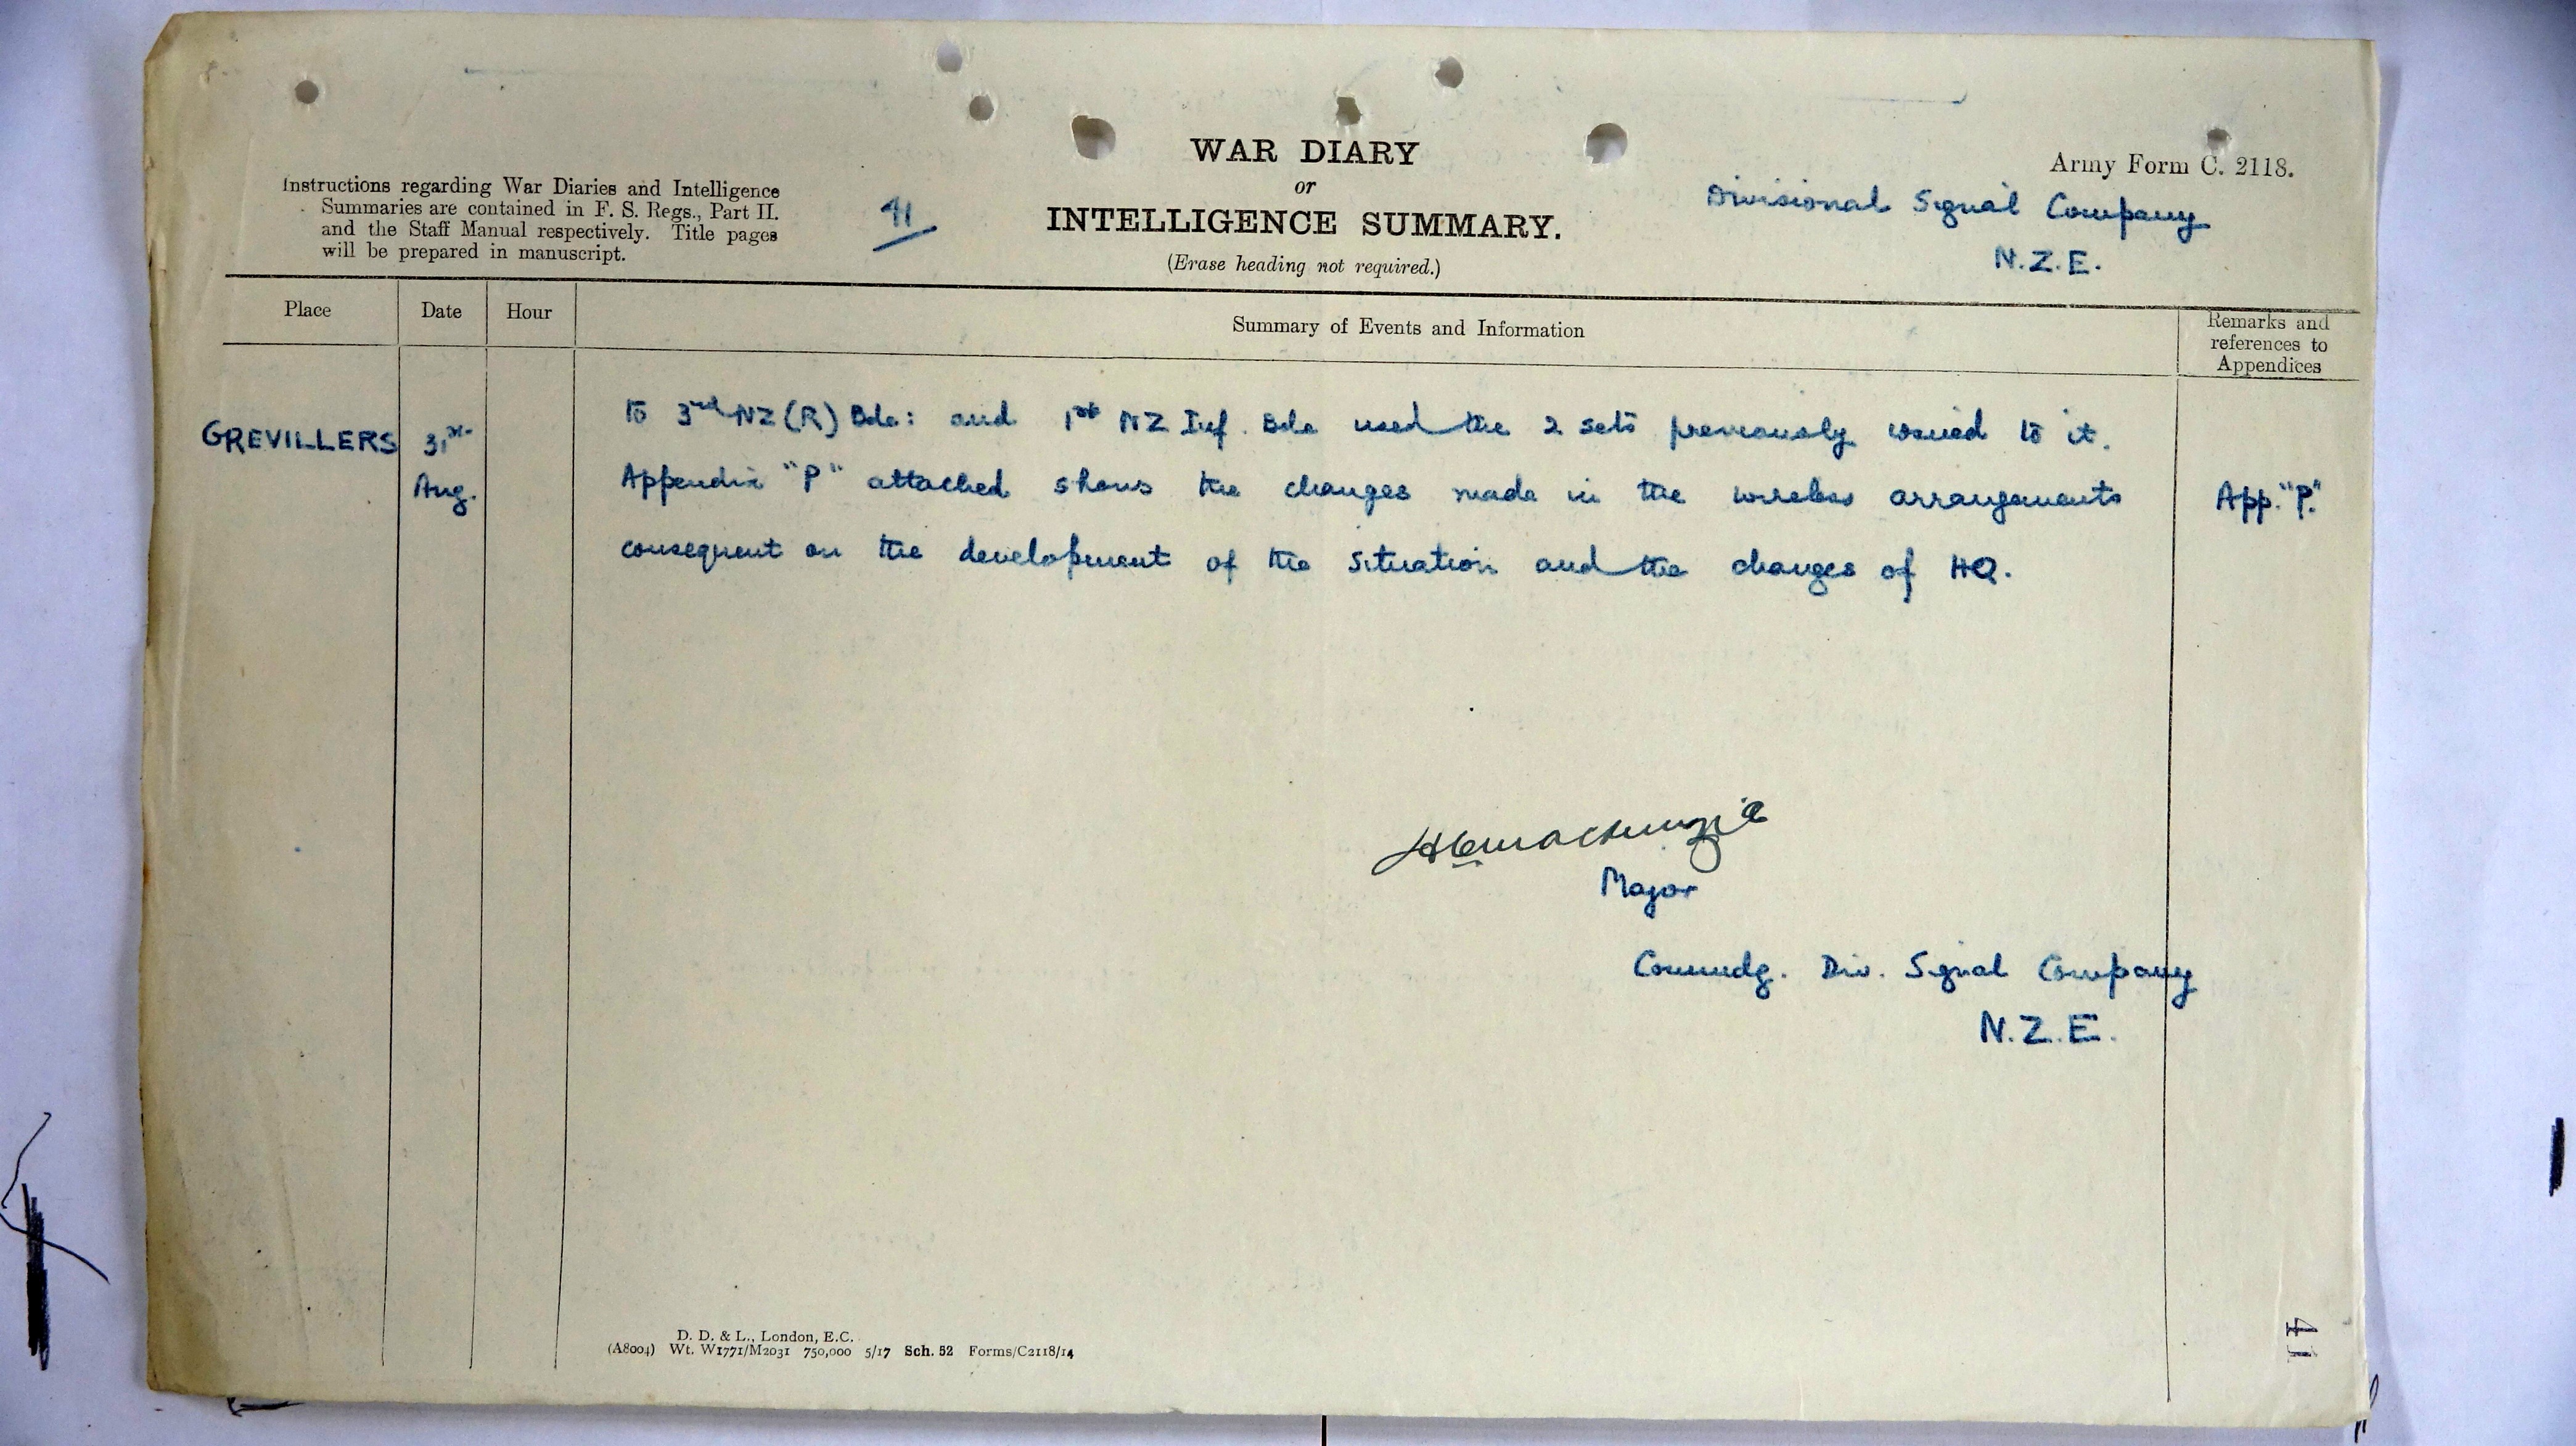 Army Form C. 2118.
WAR DIARY
or
INTELLIGENCE SUMMARY.
(Erase heading not required.)
Instructions regarding War Diaries and Intelligence
Summaries are contained in F. S. Regs., Part II.
and the Staff Manual respectively. Title pages
will be prepared in manuscript.
41
Divisional Signal Company
N.Z.E.
Place Date Hour Summary of Events and Information Remarks and
references to
Appendices
GREVILLERS 31st
Aug.
to 3rd NZ (R) Bde: and 1st NZ Inf. Bde used the 2 sets previously issued to it.
Appendix "P" attached shows the changes made in the wireless arrangements App. "P."
consequent on the development of the situation and the changes of HQ.
Major
Commdg. Div. Signal Company
N.Z.E.
D. D. & L., London, E.C.
(A8004) Wt. W1771/M2031 750,000 5/17 Sch. 52 Forms/C2118/14
41